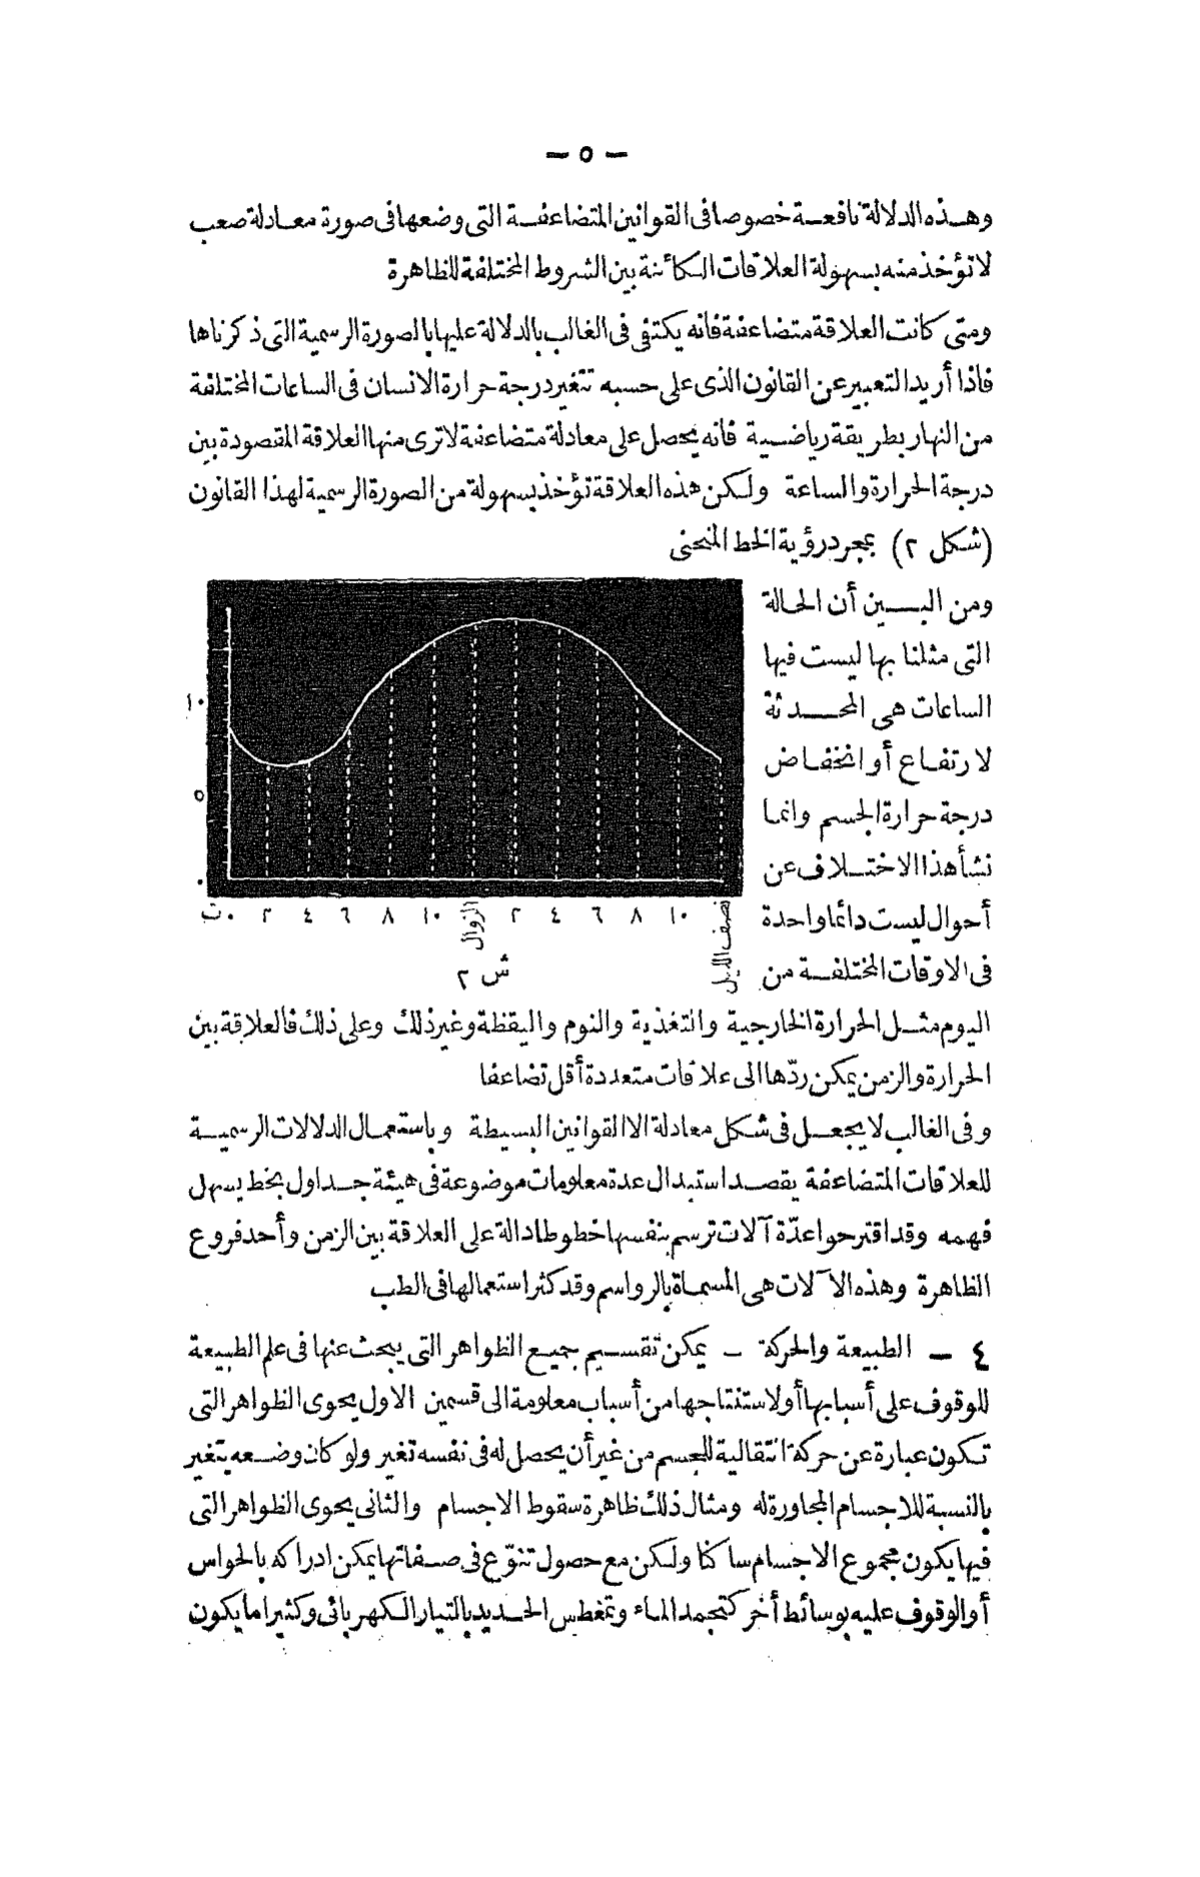 — ٥ —
وهذه الدلالة نافعة خصوصا فى القوانين المتضاعفة التى وضعها فى صورة معادلة صعب
لا تؤخذ منه بسهولة العلاقات الكائنة بين الشروط المختلفة للظاهرة
ومتى كانت العلاقة متضاعفة فانه يكتفى فى الغالب بالدلالة عليها بالصورة الرسمية التى ذكرناها
فاذا أريد التعبير عن القانون الذى على حسبه تتغير درجة حرارة الانسان فى الساعات المختلفة
من النهار بطريقة رياضية فانه يحصل على معادلة متضاعفة لا ترى منها العلاقة المقصودة بين
درجة الحرارة والساعة ولكن هذه العلاقة تؤخذ بسهولة من الصورة الرسمية لهذا القانون
(شكل ٢) بمجرد رؤية الخط المنحنى
ومن البين أن الحالة
التى مثلنا بها ليست فيها
الساعات هى المحدثة
لارتفاع أو انخفاض
درجة حرارة الجسم وانما
نشأ هذا الاختلاف عن
أحوال ليست دائما واحدة
فى الاوقات المختلفة من
١٠
٥
٠
ت ٠ ٢ ٤ ٦ ٨ ١٠ الزوال ٢ ٤ ٦ ٨ ١٠ نصف الليل
ش ٢
اليوم مثل الحرارة الخارجية والتغذية والنوم واليقظة وغير ذلك وعلى ذلك فالعلاقة بين
الحرارة والزمن يمكن ردّها الى علاقات متعددة أقل تضاعفا
وفى الغالب لا يجعل فى شكل معادلة الا القوانين البسيطة وباستعمال الدلالات الرسمية
للعلاقات المتضاعفة يقصد استبدال عدة معلومات موضوعة فى هيئة جداول بخط يسهل
فهمه وقد اقترحوا عدّة آلات ترسم بنفسها خطوطا دالة على العلاقة بين الزمن وأحد فروع
الظاهرة وهذه الآلات هى المسماة بالرواسم وقد كثر استعمالها فى الطب
٤ — الطبيعة والحركة — يمكن تقسيم جميع الظواهر التى يبحث عنها فى علم الطبيعة
للوقوف على أسبابها أو لاستنتاجها من أسباب معلومة الى قسمين الاول يحوى الظواهر التى
تكون عبارة عن حركة انتقالية للجسم من غير أن يحصل له فى نفسه تغير ولو كان وضعه يتغير
بالنسبة للاجسام المجاورة له ومثال ذلك ظاهرة سقوط الاجسام والثانى يحوى الظواهر التى
فيها يكون مجموع الاجسام ساكنا ولكن مع حصول تنوّع فى صفاتها يمكن ادراكه بالحواس
أو الوقوف عليه بوسائط أخر كتجمد الماء وتمغطس الحديد بالتيار الكهربائى وكثيرا ما يكون